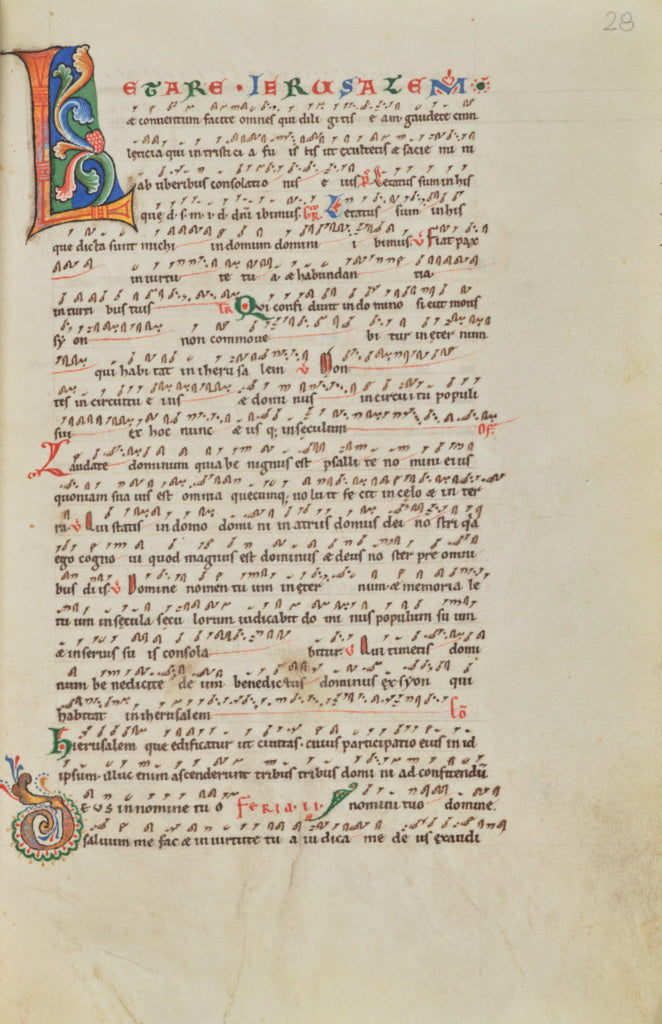 28
LETARE · IERUSALEM
& conventum facite omnes qui dili gitis e am gaudete cum
leticia qui in tristici a fu is tis ut exultetis & sacie mi ni
ab uberibus consolatio nis e ius ps Letatus sum in his
que d. s. m. i. d. dñi ibimus. GR Letatus sum in his
que dicta sunt michi in domum domini i bimus. V Fiat pax
in virtu te tu a & habundan tia
in turri bus tuis TR Qui confi dunt in do mino sicut mons
sy on non commove bi tur in eter num
qui habi tat in iherusa lem V Mon
tes in circuitu e ius & domi nus in circui tu populi
sui ex hoc nunc & us q; in seculum OF
Laudate dominum quia be nignus est psalli te no mini eius
quoniam sua vis est omnia quecumq; voluit fe cit in celo & in ter
ra V Qui statis in domo domi ni in atriis domus dei no stri q̃a
ego cogno vi quod magnus est dominus & deus no ster pre omni
bus diis V Domine nomen tu um in eter num & memoria le
tu um in secula secu lorum iudicabit do mi nus populum su um
& in servis su is consola bitur. V Qui timetis domi
num be nedicite de um benedictus dominus ex syon qui
habitat in iherusalem CÕ
Hierusalem que edificatur ut civitas. cuius participatio eius in id
ipsum. illuc enim ascenderunt tribus tribus domi ni ad confitendũ
nomini tuo domine.
FERIA · II ·
DEUS in nomine tu o
salvum me fac & in virtute tu a iu dica me de us exaudi